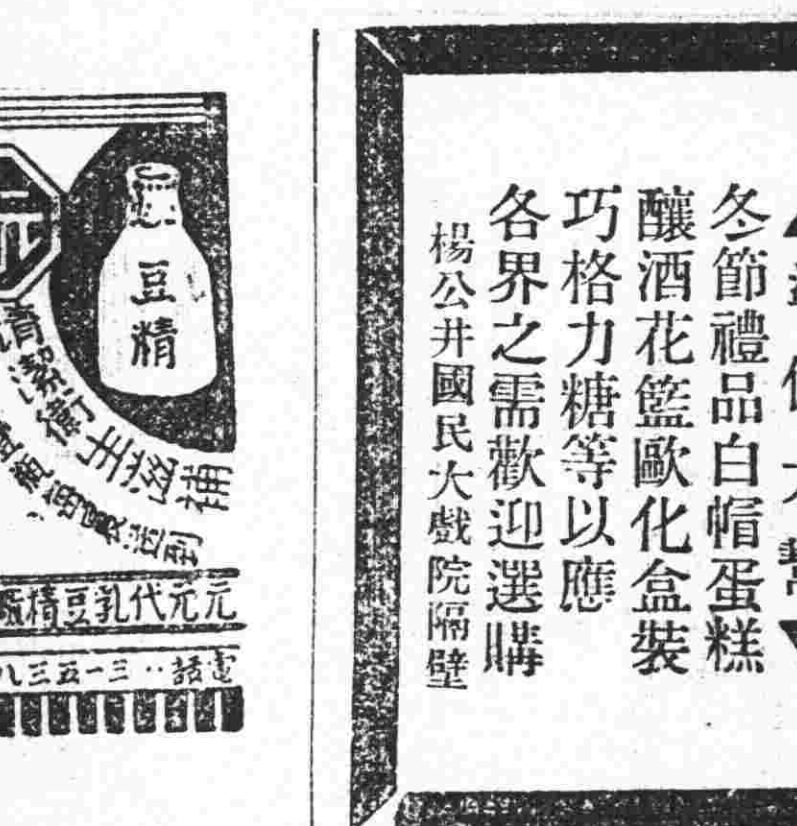 冬節禮品白帽蛋糕
釀酒花籃歐化盒裝
巧格力糖等以應
各界之需歡迎選購
楊公井國民大戲院隔壁
豆精
清潔衛生滋補
送到
元元代乳豆精廠
電話：三一五三八